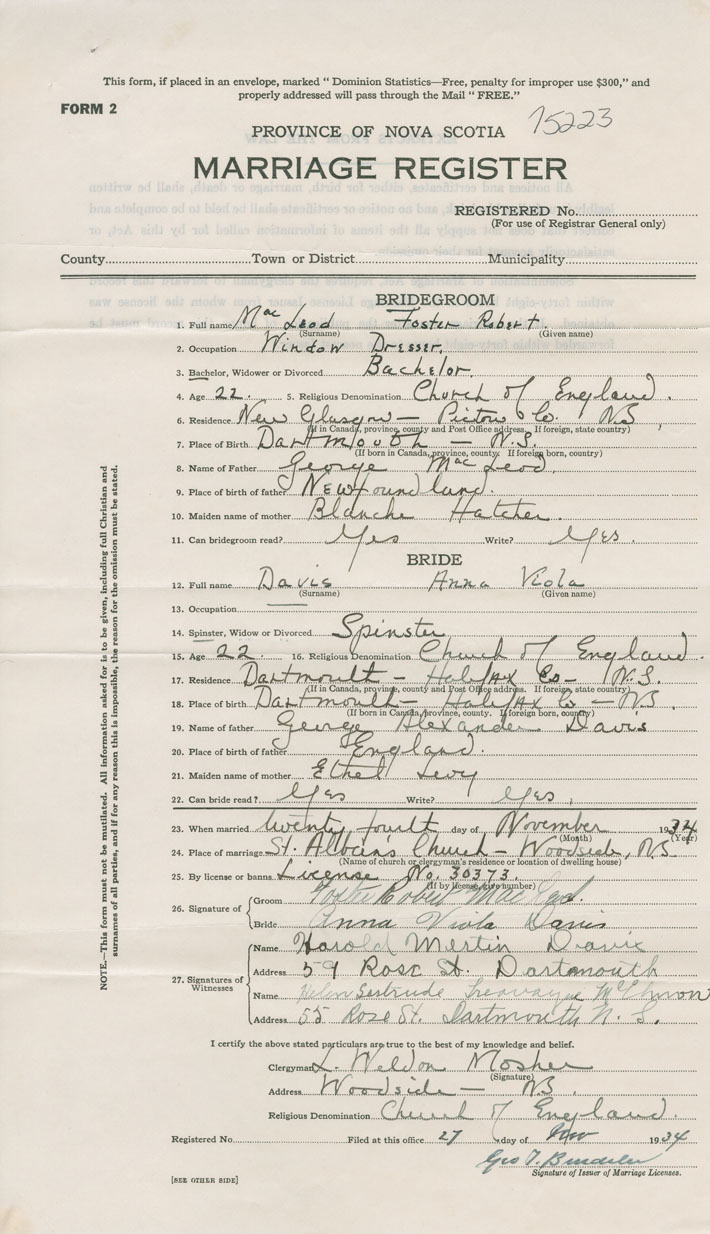 This form, if placed in an envelope, marked " Dominion Statistics—Free, penalty for improper use $300," and
properly addressed will pass through the Mail " FREE."
FORM 2
75223
PROVINCE OF NOVA SCOTIA
MARRIAGE REGISTER
REGISTERED No.
(For use of Registrar General only)
County Town or District Municipality
BRIDEGROOM
1. Full name Mac Leod Foster Robert
(Surname) (Given name)
2. Occupation Window Dresser
3. Bachelor, Widower or Divorced Bachelor
4. Age 22. 5. Religious Denomination Church of England.
6. Residence New Glasgow — Pictou Co. N.S.
(If in Canada, province, county and Post Office address. If foreign, state country)
7. Place of Birth Dartmouth — N.S.
(If born in Canada, province, county. If foreign born, country)
8. Name of Father George Mac Leod.
9. Place of birth of father Newfoundland.
10. Maiden name of mother Blanche Hatcher.
11. Can bridegroom read? Yes Write? Yes.
BRIDE
12. Full name Davis Anna Viola
(Surname) (Given name)
13. Occupation
14. Spinster, Widow or Divorced Spinster
15. Age 22. 16. Religious Denomination Church of England.
17. Residence Dartmouth — Halifax Co — N.S.
(If in Canada, province, county and Post Office address. If foreign, state country)
18. Place of birth Dartmouth — Halifax Co — N.S.
(If born in Canada, province, county. If foreign born, country)
19. Name of father George Alexander Davis
20. Place of birth of father England.
21. Maiden name of mother Ethel Levy
22. Can bride read? Yes Write? Yes,
23. When married twenty fourth day of November 1934
(Month) (Year)
24. Place of marriage St. Alban's Church — Woodside, N.S.
(Name of church or clergyman's residence or location of dwelling house)
25. By license or banns License No. 30373.
(If by license, give number)
26. Signature of Groom Foster Robert MacLeod.
Bride Anna Viola Davis
27. Signatures of Witnesses Name Harold Mertin Davis
Address 59 Rose St. Dartmouth
Name Helen Gertrude
Address 55 Rose St. Dartmouth N.S.
I certify the above stated particulars are true to the best of my knowledge and belief.
Clergyman L. Weldon Mosher
(Signature)
Address Woodside — N.S.
Religious Denomination Church of England.
Registered No. Filed at this office 27 day of Nov 1934
Geo T.
Signature of Issuer of Marriage Licenses.
[SEE OTHER SIDE]
NOTE.—This form must not be mutilated. All information asked for is to be given, including full Christian and
surnames of all parties, and if for any reason this is impossible, the reason for the omission must be stated.